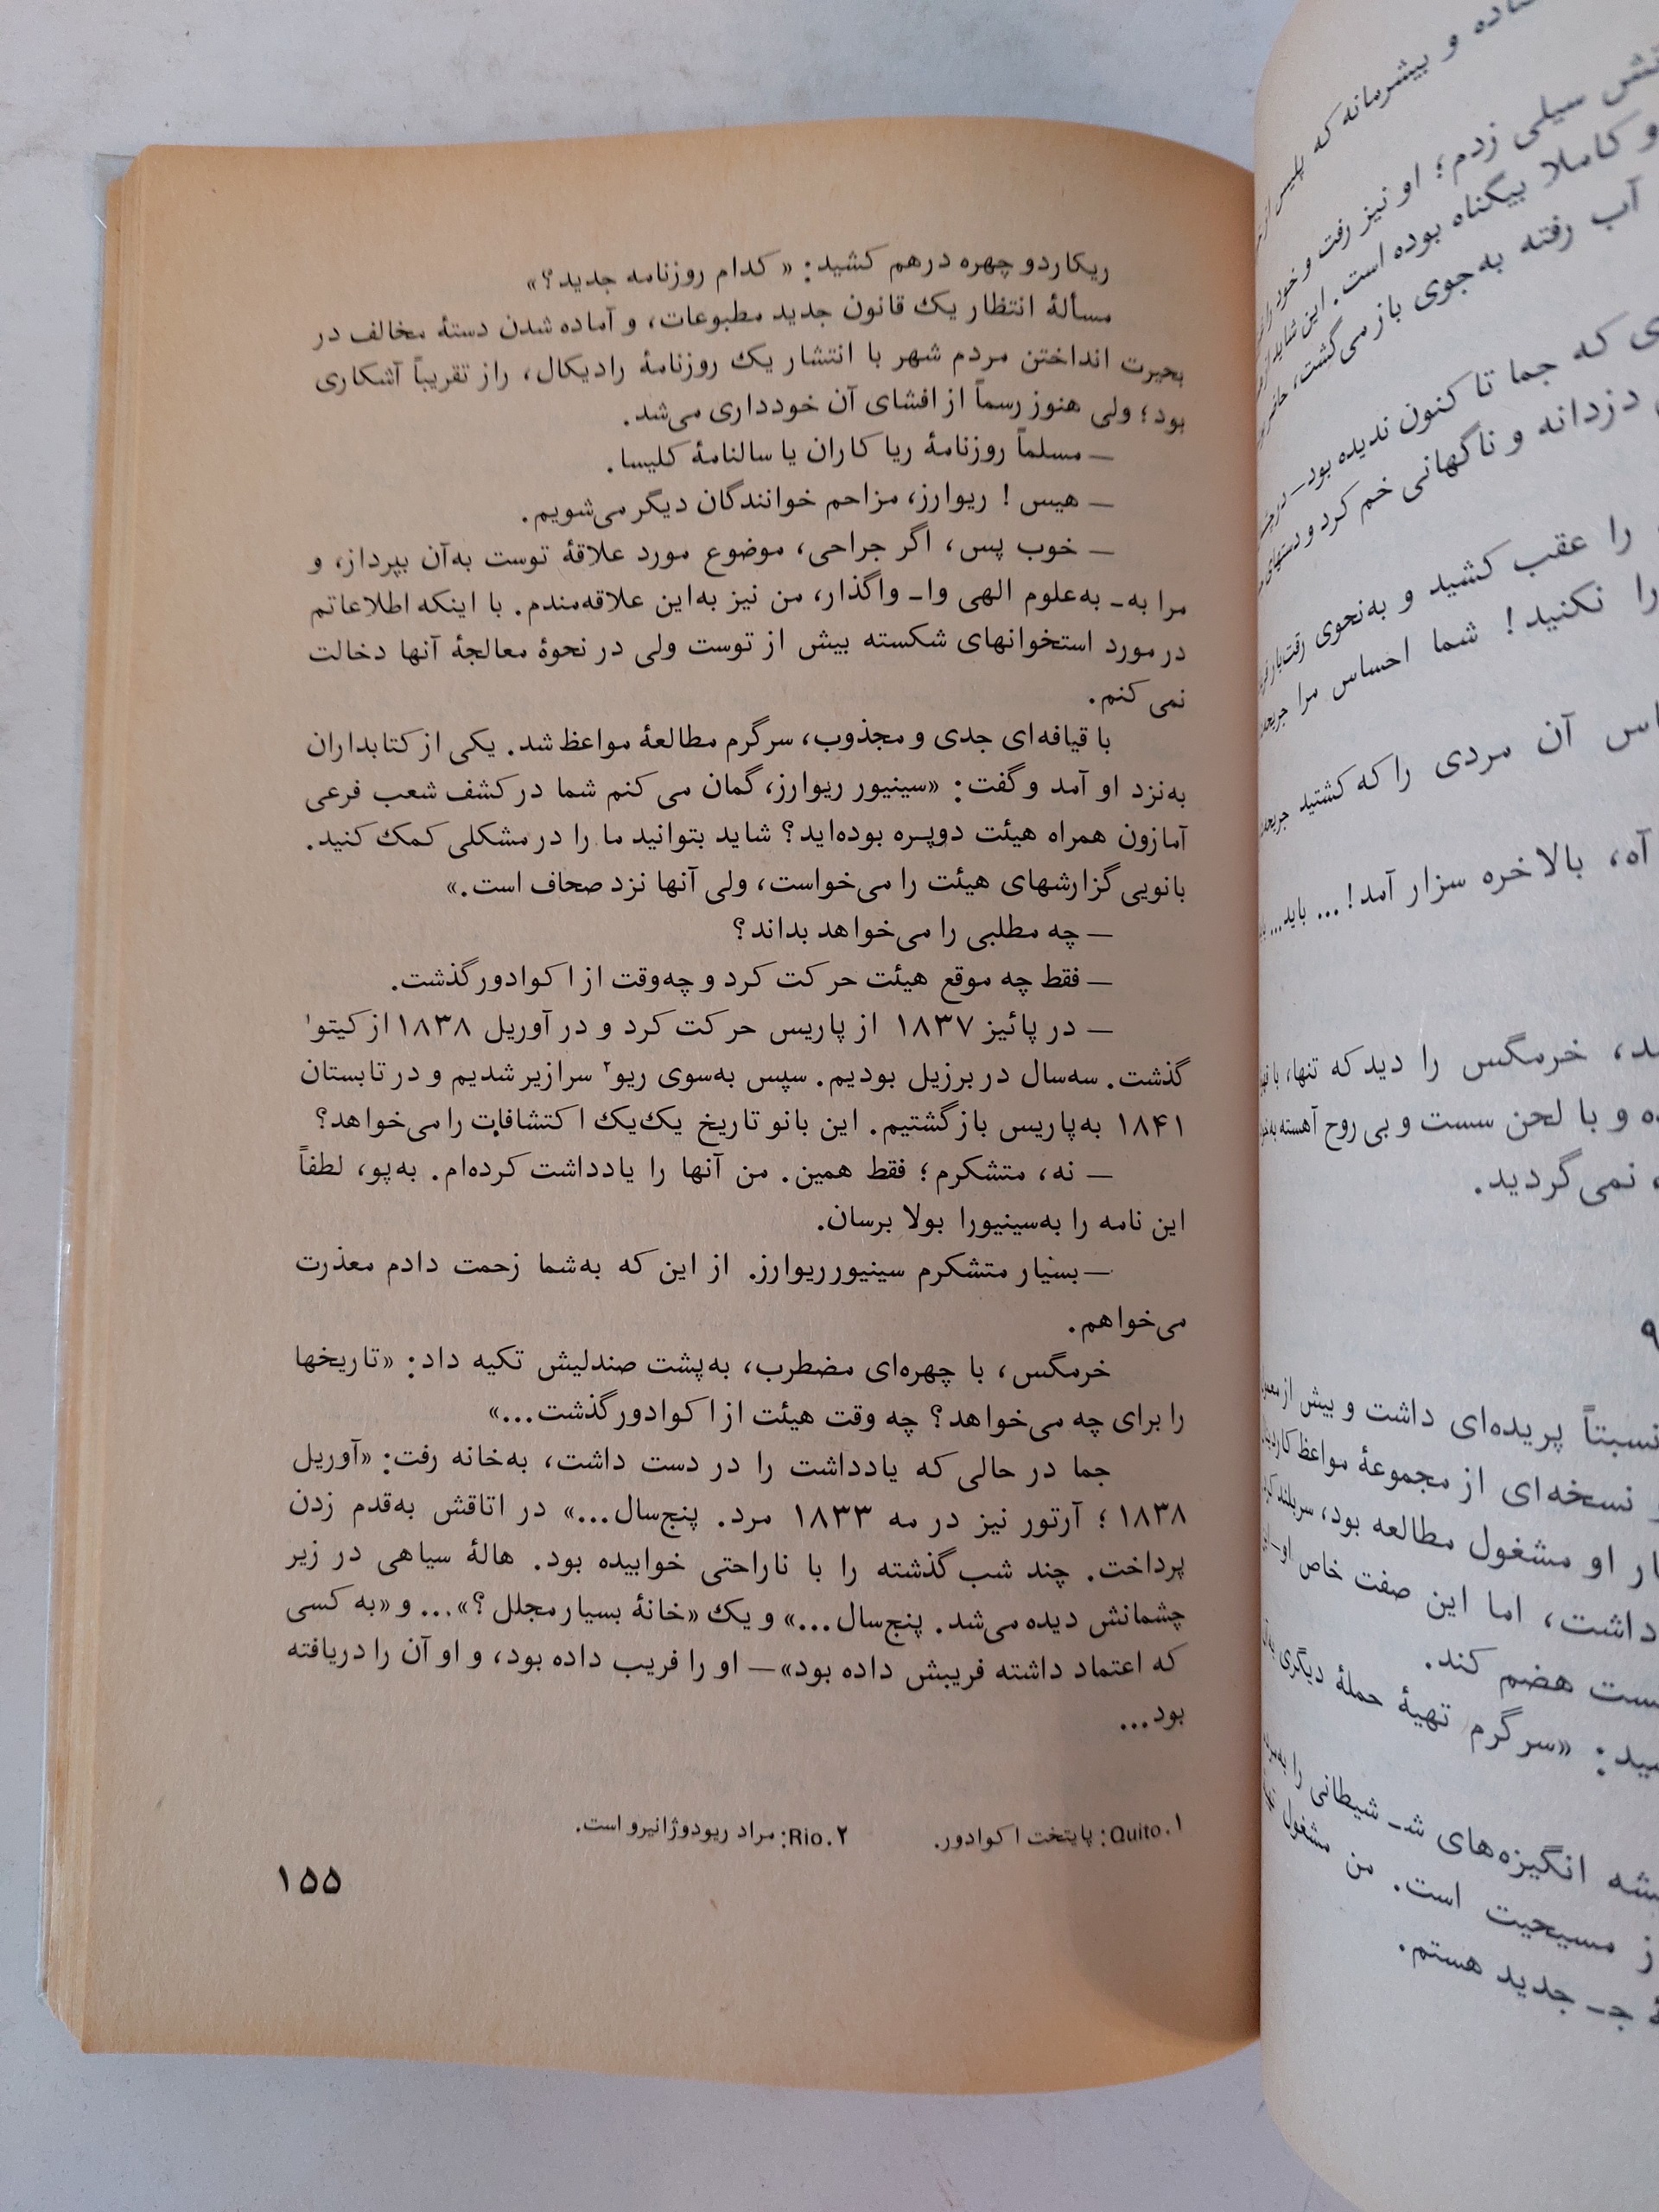 ـاده و بیشرمانه که پلیس از
ـتش سیلی زدم؛ او نیز رفت و خود را
و کاملا بیگناه بوده است. این شاید از
آب رفته به‌جوی باز می‌گشت، حاضر
ـی که جما تا کنون ندیده بود ــ در
دزدانه و ناگهانی خم کرد و دستهای
را عقب کشید و به‌نحوی رقت‌بار
را نکنید! شما احساس مرا
ـاس آن مردی را که کشتید
آه، بالاخره سزار آمد!... باید...
ـد، خرمگس را دید که تنها، با
ـه و با لحن سست و بی روح آهسته
، نمی‌گردید.
۹
نسبتاً پریده‌ای داشت و بیش از
نسخه‌ای از مجموعهٔ مواعظ
ـار او مشغول مطالعه بود، سربلند
داشت، اما این صفت خاص او
ـست هضم کند.
ـید: «سرگرم تهیهٔ حملهٔ دیگری
ـشه انگیزه‌های شـ شیطانی را
ز مسیحیت است. من مشغول
جـ جدید هستم.
ریکاردو چهره درهم کشید: «کدام روزنامه جدید؟»
مسألهٔ انتظار یک قانون جدید مطبوعات، و آماده شدن دستهٔ مخالف در
بحیرت انداختن مردم شهر با انتشار یک روزنامهٔ رادیکال، راز تقریباً آشکاری
بود؛ ولی هنوز رسماً از افشای آن خودداری می‌شد.
ــ مسلماً روزنامهٔ ریا کاران یا سالنامهٔ کلیسا.
ــ هیس! ریوارز، مزاحم خوانندگان دیگر می‌شویم.
ــ خوب پس، اگر جراحی، موضوع مورد علاقهٔ توست به‌آن بپرداز، و
مرا به‍ـ به‌علوم الهی واـ واگذار، من نیز به‌این علاقه‌مندم. با اینکه اطلاعاتم
در مورد استخوانهای شکسته بیش از توست ولی در نحوهٔ معالجهٔ آنها دخالت
نمی کنم.
با قیافه‌ای جدی و مجذوب، سرگرم مطالعهٔ مواعظ شد. یکی از کتابداران
به‌نزد او آمد و گفت: «سینیور ریوارز، گمان می کنم شما در کشف شعب فرعی
آمازون همراه هیئت دوپره بوده‌اید؟ شاید بتوانید ما را در مشکلی کمک کنید.
بانویی گزارشهای هیئت را می‌خواست، ولی آنها نزد صحاف است.»
ــ چه مطلبی را می‌خواهد بداند؟
ــ فقط چه موقع هیئت حرکت کرد و چه‌وقت از اکوادور گذشت.
ــ در پائیز ۱۸۳۷ از پاریس حرکت کرد و در آوریل ۱۸۳۸ از کیتو۱
گذشت. سه‌سال در برزیل بودیم. سپس به‌سوی ریو۲ سرازیر شدیم و در تابستان
۱۸۴۱ به‌پاریس بازگشتیم. این بانو تاریخ یک‌یک اکتشافات را می‌خواهد؟
ــ نه، متشکرم؛ فقط همین. من آنها را یادداشت کرده‌ام. به‌پو، لطفاً
این نامه را به‌سینیورا بولا برسان.
ــ بسیار متشکرم سینیور ریوارز. از این که به‌شما زحمت دادم معذرت
می‌خواهم.
خرمگس، با چهره‌ای مضطرب، به‌پشت صندلیش تکیه داد: «تاریخها
را برای چه می‌خواهد؟ چه وقت هیئت از اکوادور گذشت...»
جما در حالی که یادداشت را در دست داشت، به‌خانه رفت: «آوریل
۱۸۳۸؛ آرتور نیز در مه ۱۸۳۳ مرد. پنج‌سال...» در اتاقش به‌قدم زدن
پرداخت. چند شب گذشته را با ناراحتی خوابیده بود. هالهٔ سیاهی در زیر
چشمانش دیده می‌شد. پنج‌سال...» و یک «خانهٔ بسیار مجلل؟»... و «به کسی
که اعتماد داشته فریبش داده بود» ــ او را فریب داده بود، و او آن را دریافته
بود...
۱. Quito: پایتخت اکوادور. ۲. Rio: مراد ریودوژانیرو است.
۱۵۵